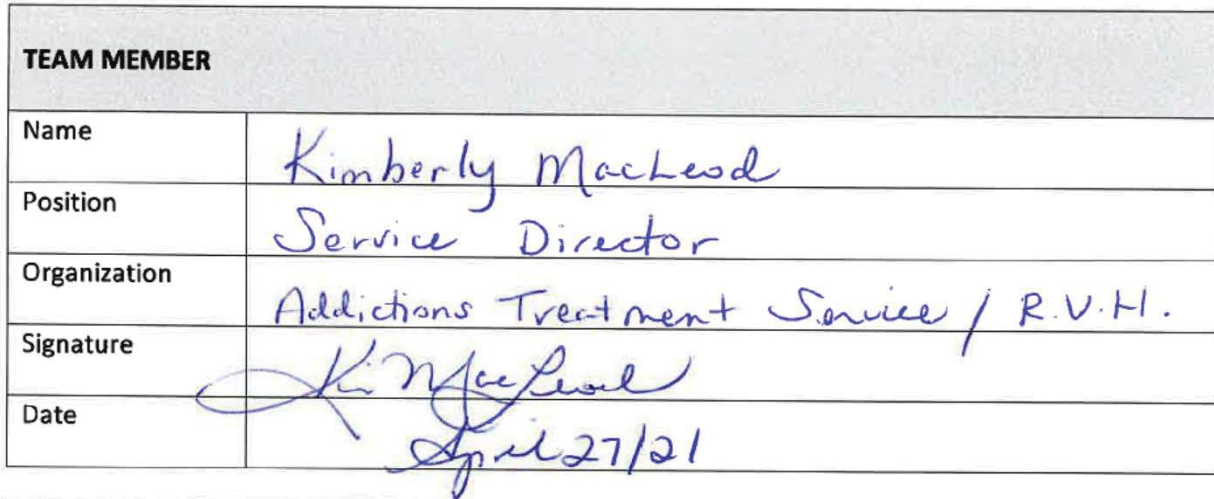 TEAM MEMBER
Name Kimberly MacLeod
Position Service Director
Organization Addictions Treatment Service / R.V.H.
Signature Kim MacLeod
Date April 27/21